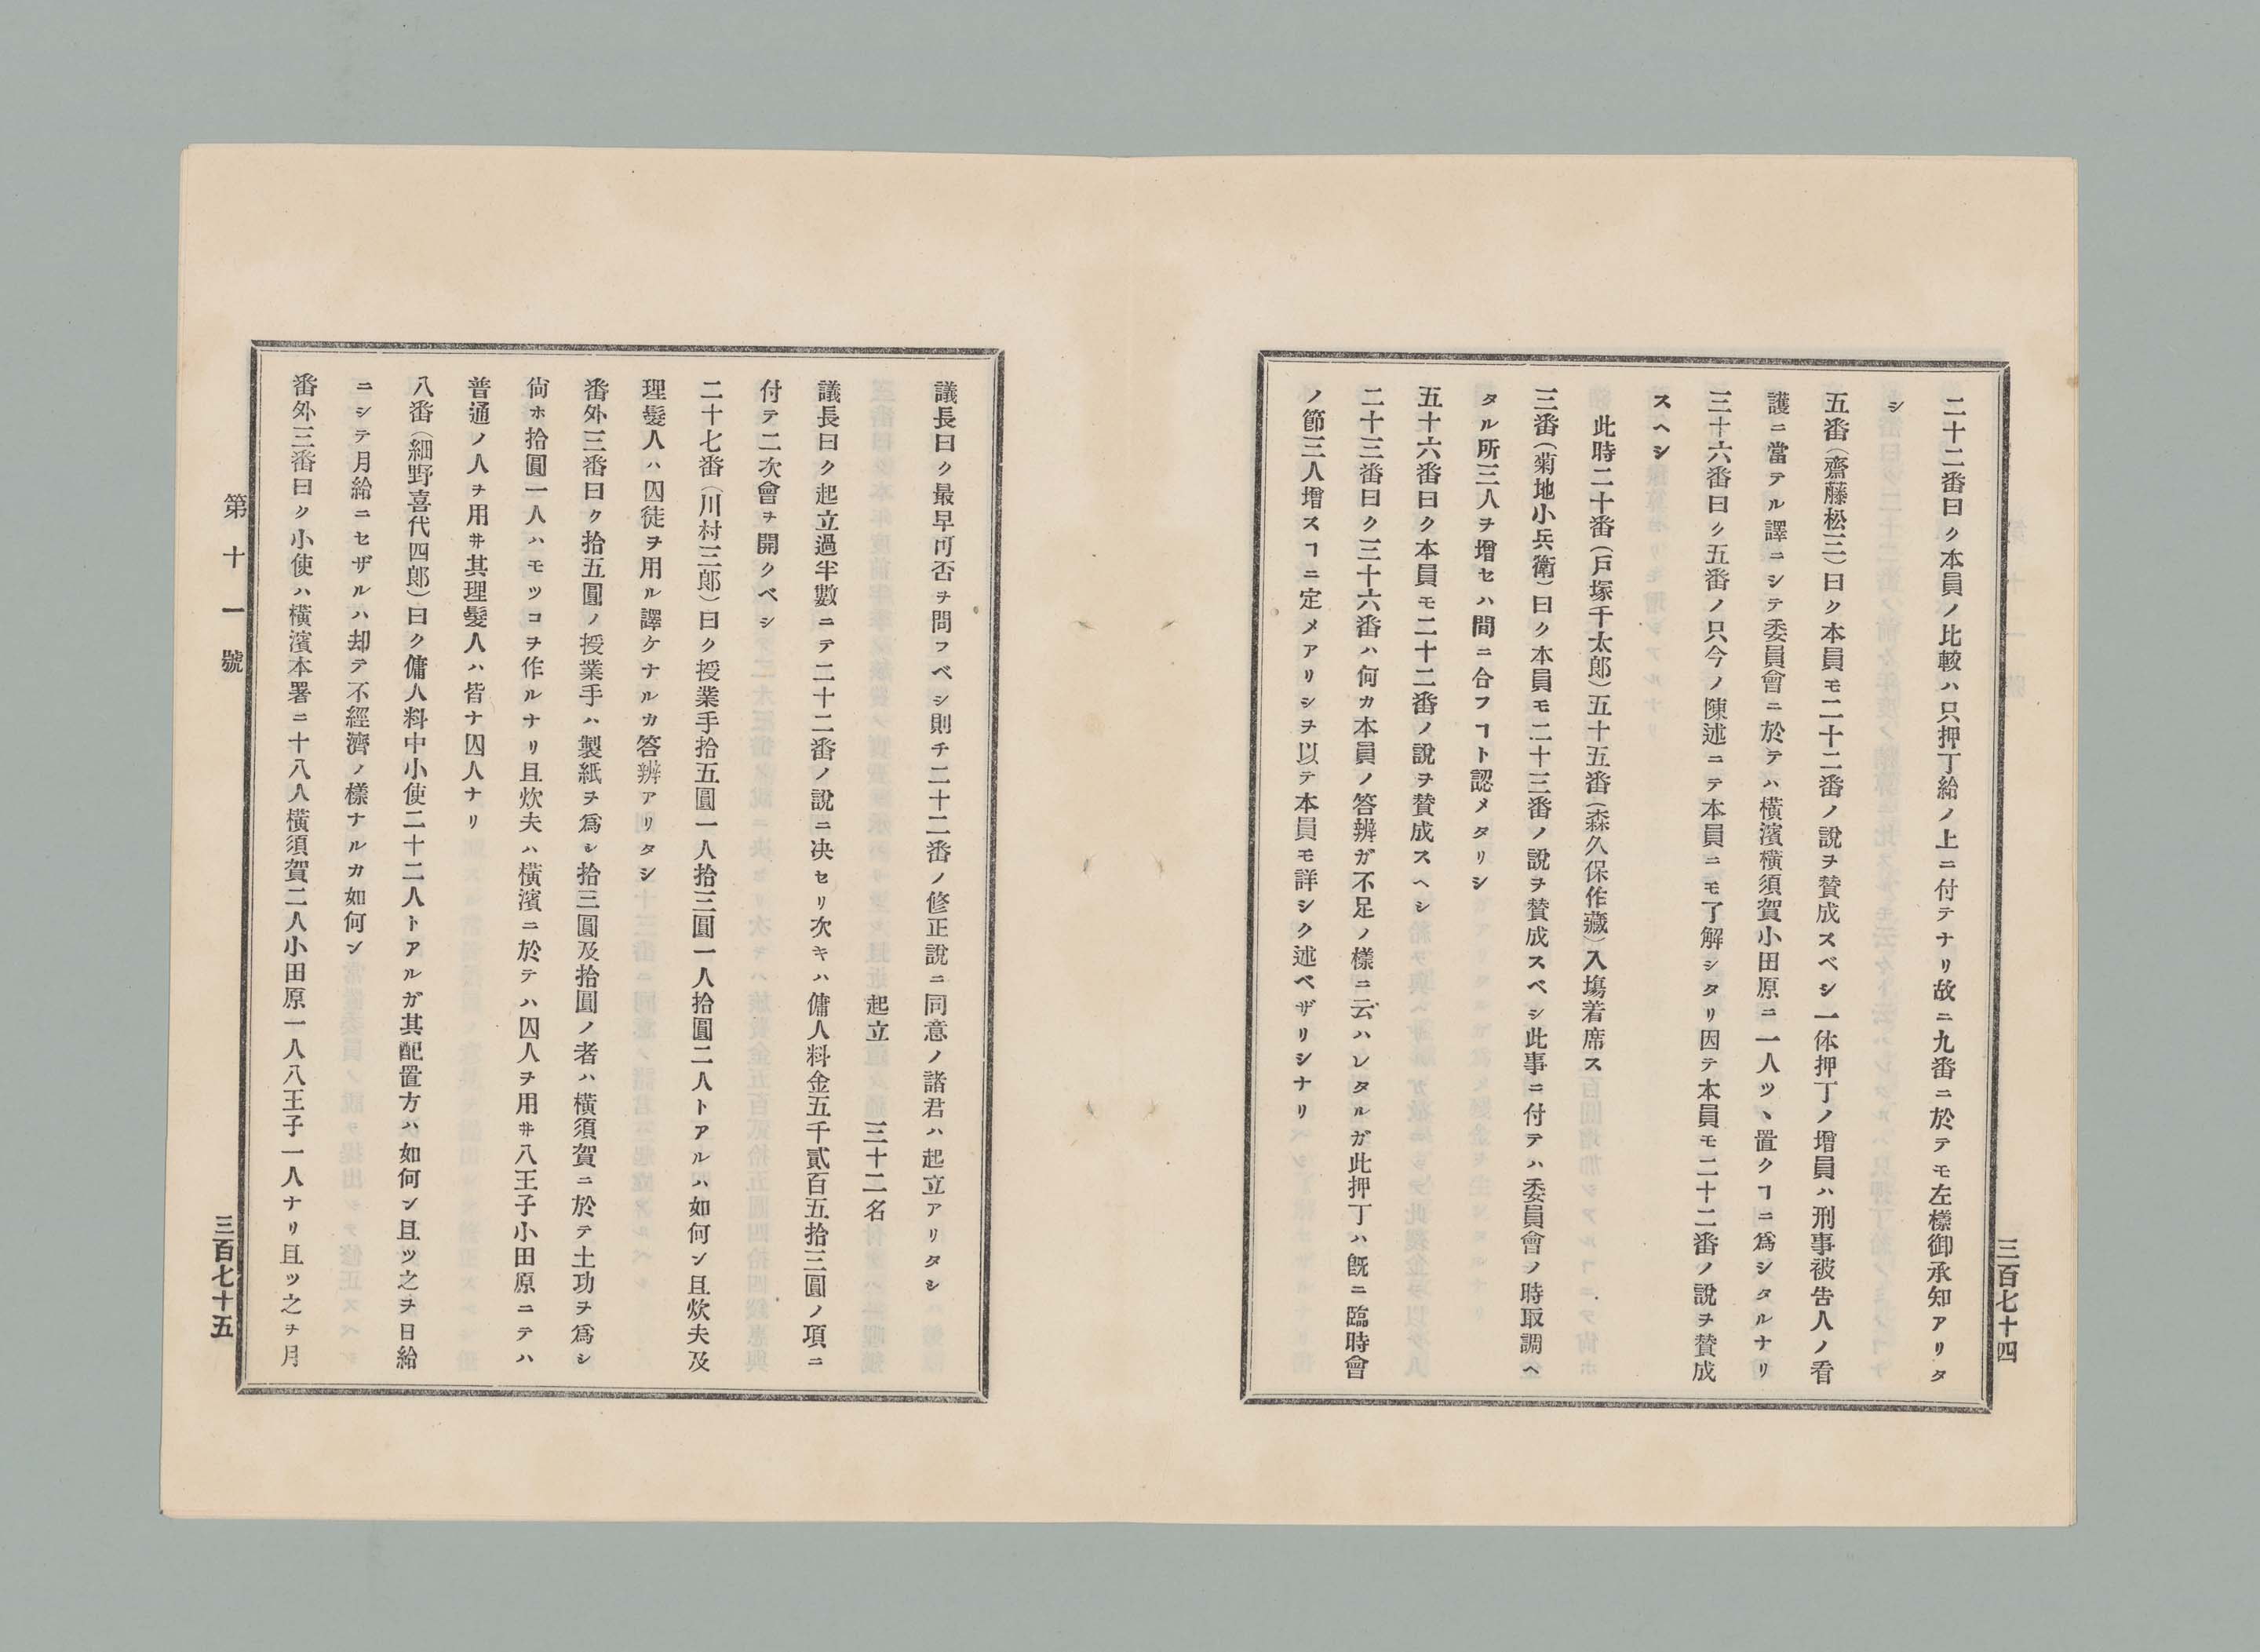 二十二番曰ク本員ノ比較ハ只押丁給ノ上ニ付テナリ故ニ九番ニ於テモ左樣御承知アリタ
シ
五番（齋藤松三）曰ク本員モ二十二番ノ說ヲ賛成スベシ一体押丁ノ增員ハ刑事被告人ノ看
護ニ當テル譯ニシテ委員會ニ於テハ橫濱橫須賀小田原ニ一人ツヽ置クヿニ爲シタルナリ
三十六番曰ク五番ノ只今ノ陳述ニテ本員ニモ了解シタリ因テ本員モ二十二番ノ說ヲ賛成
スヘシ
此時二十番（戸塚千太郎）五十五番（森久保作藏）入塲着席ス
三番（菊地小兵衛）曰ク本員モ二十三番ノ說ヲ賛成スベシ此事ニ付テハ委員會ノ時取調ヘ
タル所三人ヲ增セハ間ニ合フヿト認メタリシ
五十六番曰ク本員モ二十二番ノ說ヲ賛成スヘシ
二十三番曰ク三十六番ハ何カ本員ノ答辨ガ不足ノ樣ニ云ハレタルガ此押丁ハ既ニ臨時會
ノ節三人增スヿニ定メアリシヲ以テ本員モ詳シク述ベザリシナリ
三百七十四
議長曰ク最早可否ヲ問フベシ則チ二十二番ノ修正說ニ同意ノ諸君ハ起立アリタシ
起立 三十二名
議長曰ク起立過半數ニテ二十二番ノ說ニ决セリ次キハ傭人料金五千貳百五拾三圓ノ項ニ
付テ二次會ヲ開クベシ
二十七番（川村三郎）曰ク授業手拾五圓一人拾三圓一人拾圓二人トアルハ如何ン且炊夫及
理髮人ハ囚徒ヲ用ル譯ケナルカ答辨アリタシ
番外三番曰ク拾五圓ノ授業手ハ製紙ヲ爲シ拾三圓及拾圓ノ者ハ橫須賀ニ於テ土功ヲ爲シ
尙ホ拾圓一人ハモツコヲ作ルナリ且炊夫ハ橫濱ニ於テハ囚人ヲ用井八王子小田原ニテハ
普通ノ人ヲ用井其理髮人ハ皆ナ囚人ナリ
八番（細野喜代四郎）曰ク傭人料中小使二十二人トアルガ其配置方ハ如何ン且ツ之ヲ日給
ニシテ月給ニセザルハ却テ不經濟ノ樣ナルカ如何ン
番外三番曰ク小使ハ橫濱本署ニ十八人橫須賀二人小田原一人八王子一人ナリ且ツ之ヲ月
第十一號
三百七十五